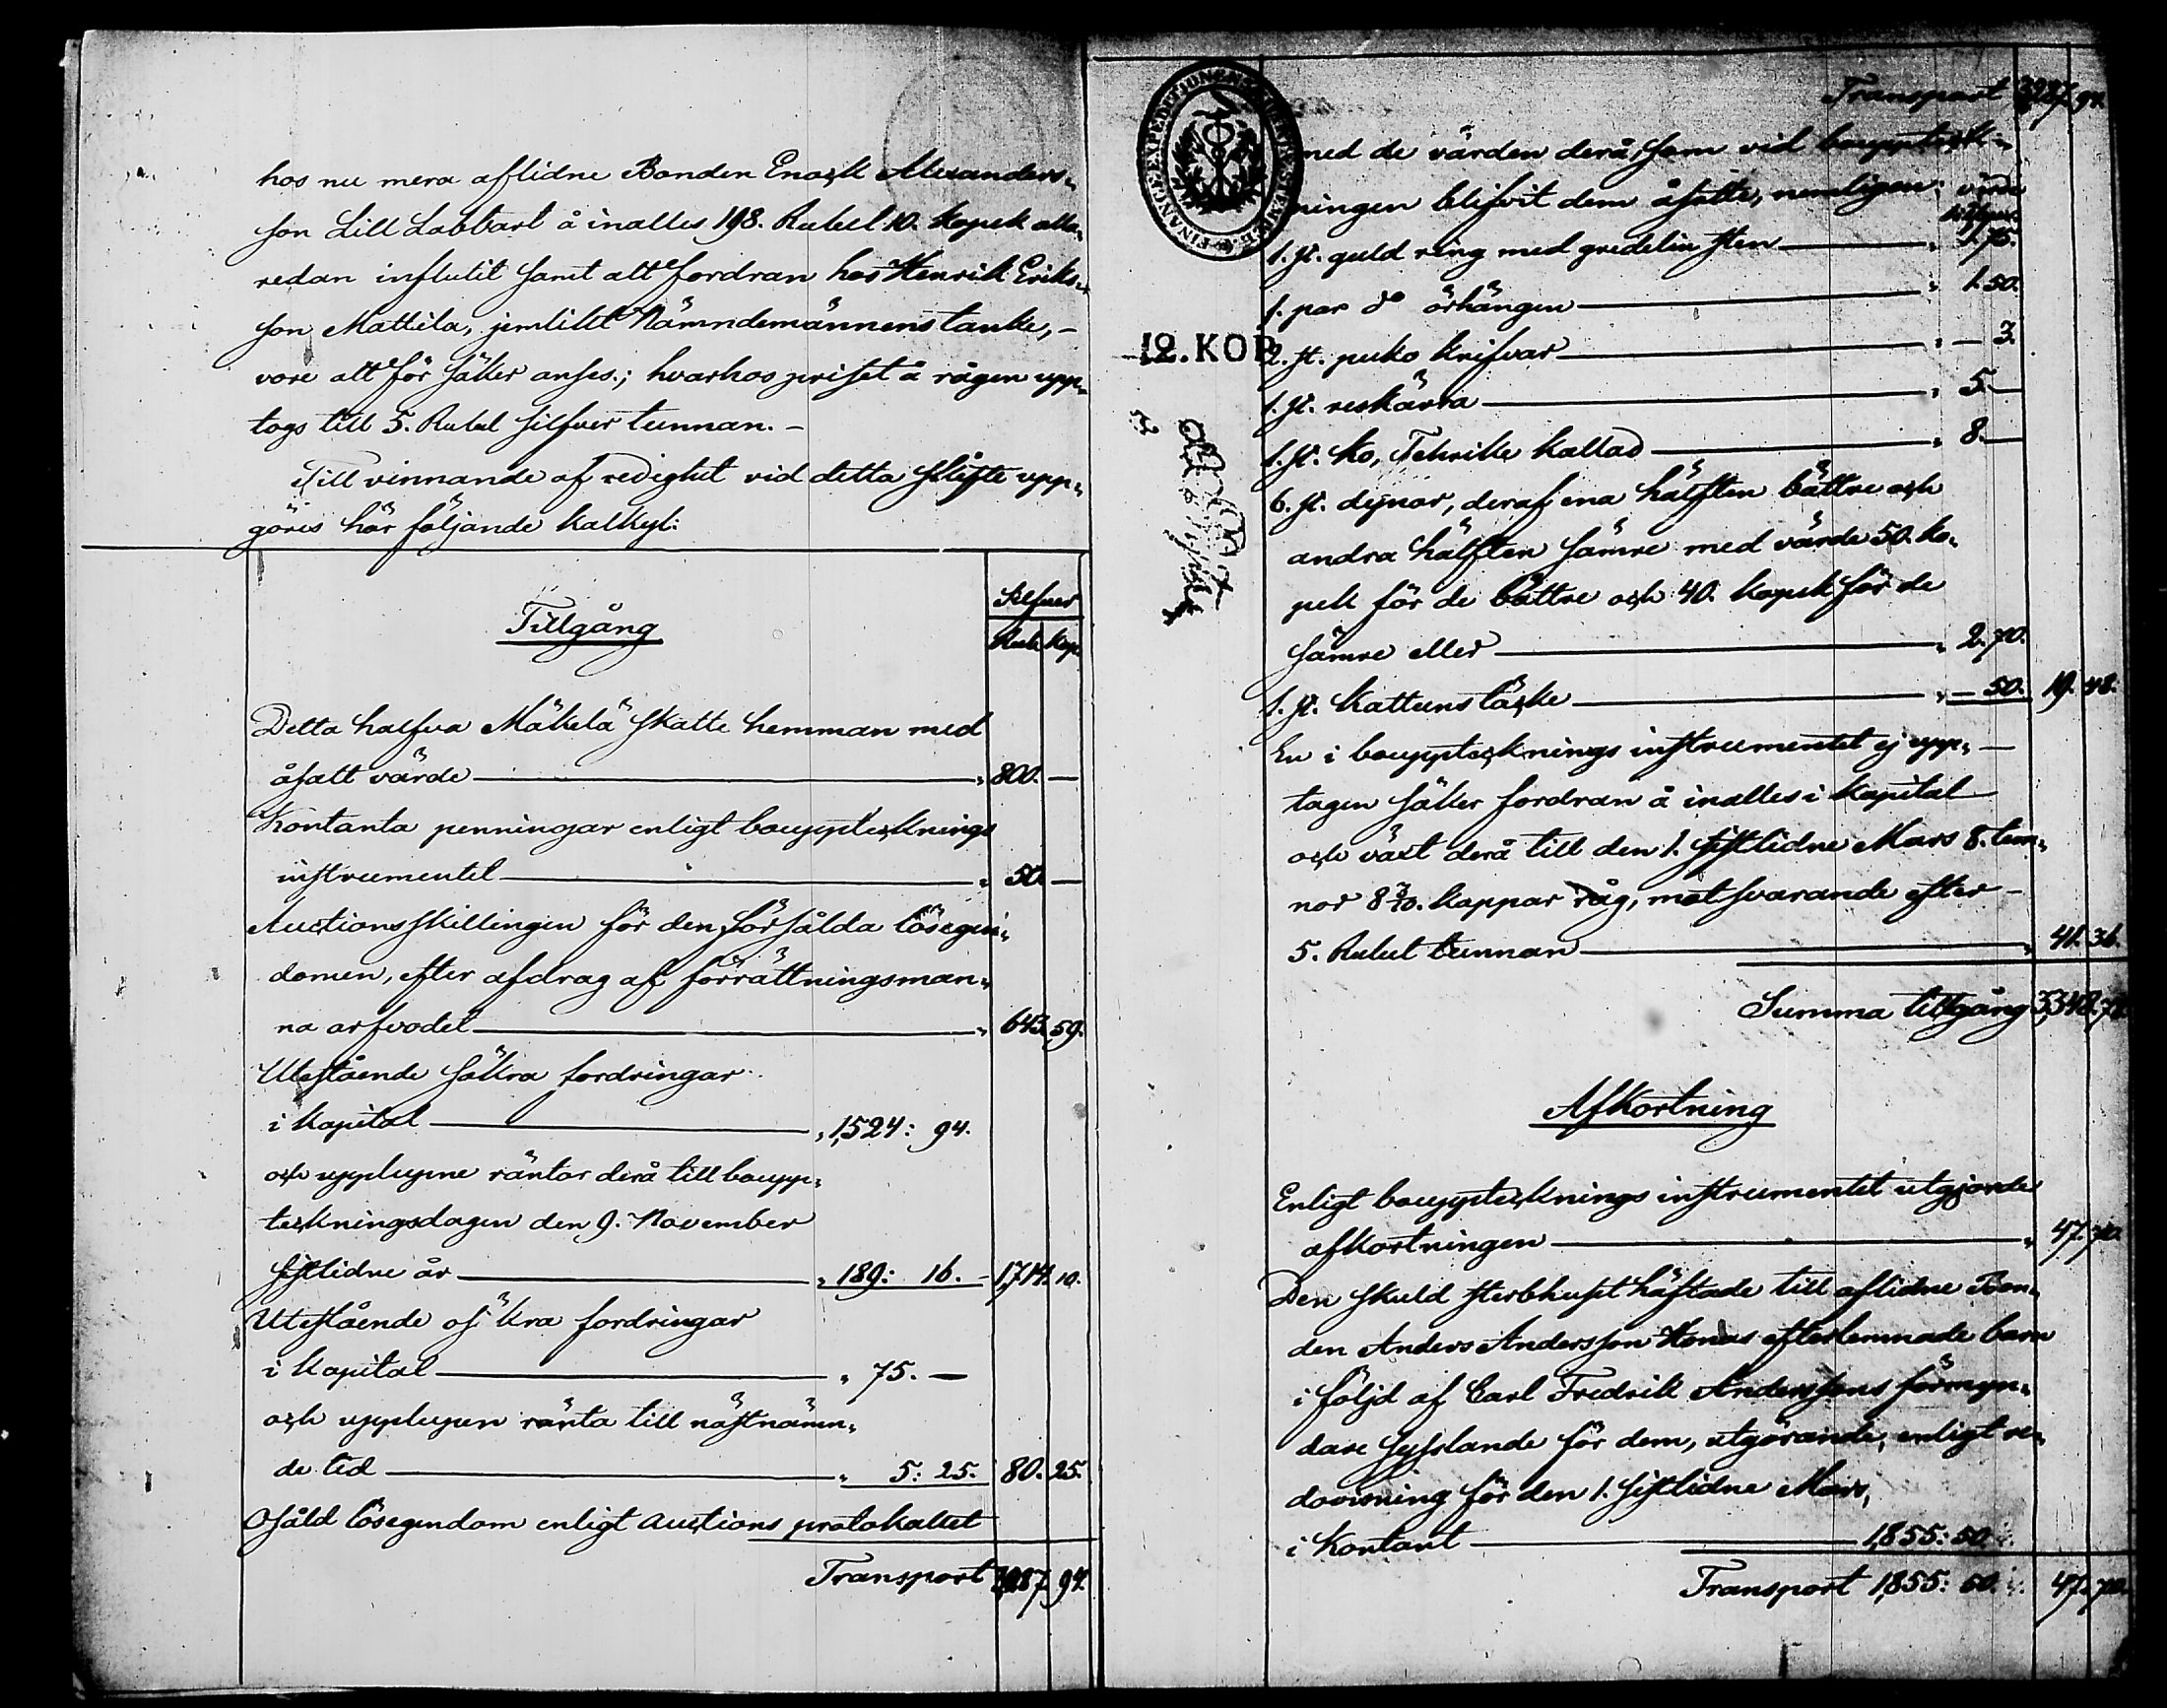 hos nu mera aflidne Bonden Enock Alexanders-
son Lill Labbart å inalles 198. Rubel 10. kopek alla-
redan influtit samt att fordran hos Henrik Eriks-
son Mattila, jemlikt Nämndemännens tanke, -
vore att för säker anses.; hvarhos priset å rågen upp-
togs till 5. Rubel silfver tunnan. -
Till vinnande af redighet vid detta skifte upp-
göres här följande kalkyl:
Tillgång
Silfver
Rub. Kop.
Detta halfva Mäkelä skatte hemman med
åsatt värde " 800. —
Kontanta penningar enligt bouppteknings
instrumentet " 50. —
Auctionsskillingen för den försålda lösegen-
domen, efter afdrag af förrättningsman-
na arfvodet " 643. 59.
Utestående säkra fordringar
i kapital " 1,524: 94.
och upplupne räntor derå till boupp-
teckningsdagen den 9. November
sistlidne år " 189: 16. 1,714. 10.
Utestående osäkra fordringar
i kapital " 75. —
och upplupen ränta till nästnämn-
de tid " 5: 25. 80. 25.
Osåld lösegendom enligt auctions protokollet
Transport 3,287. 94.
Transport 3,287. 94.
FINANCE EXPEDITIONENS
12. KOP.
med de värden derå, som vid bouppteck-
ningen blifvit dem åsatte, nemligen: värde
1. st. guld ring med gredelin sten " 1. 75.
1. par do örhängen " 1. 50.
2. st. puko knifvar " — 3.
1. st. reskärra " 5. —
1. st. ko, Tehrike kallad " 8. —
6. st. dynor, deraf ena hälften bättre och
andra hälften sämre med värde 50. ko-
pek för de bättre och 40. kopek för de
sämre eller " 2. 70.
1. st. Kattunstäcke " — 50. 19. 48.
En i bouppteknings instrumentet ej upp- —
tagen säker fordran å inalles i kapital
och växt derå till den 1. sistlidne Mars 8. tun-
nor 8 3/10. kappar råg, motsvarande efter -
5. Rubel tunnan " 41. 36.
Summa tillgång 3,348. 78.
Afkortning
Enligt bouppteknings instrumentet utgjorde
afkortningen " 47. 70.
Den skuld sterbhuset häftade till aflidne Bon-
den Anders Andersson efterlemnade barn
i följd af Carl Fredrik Anderssons förmyn-
dare sysslande för dem, utgörande, enligt re-
dovisning för den 1. sistlidne Mars,
i kontant 1,855: 50.
Transport 1,855: 60. 47. 70.